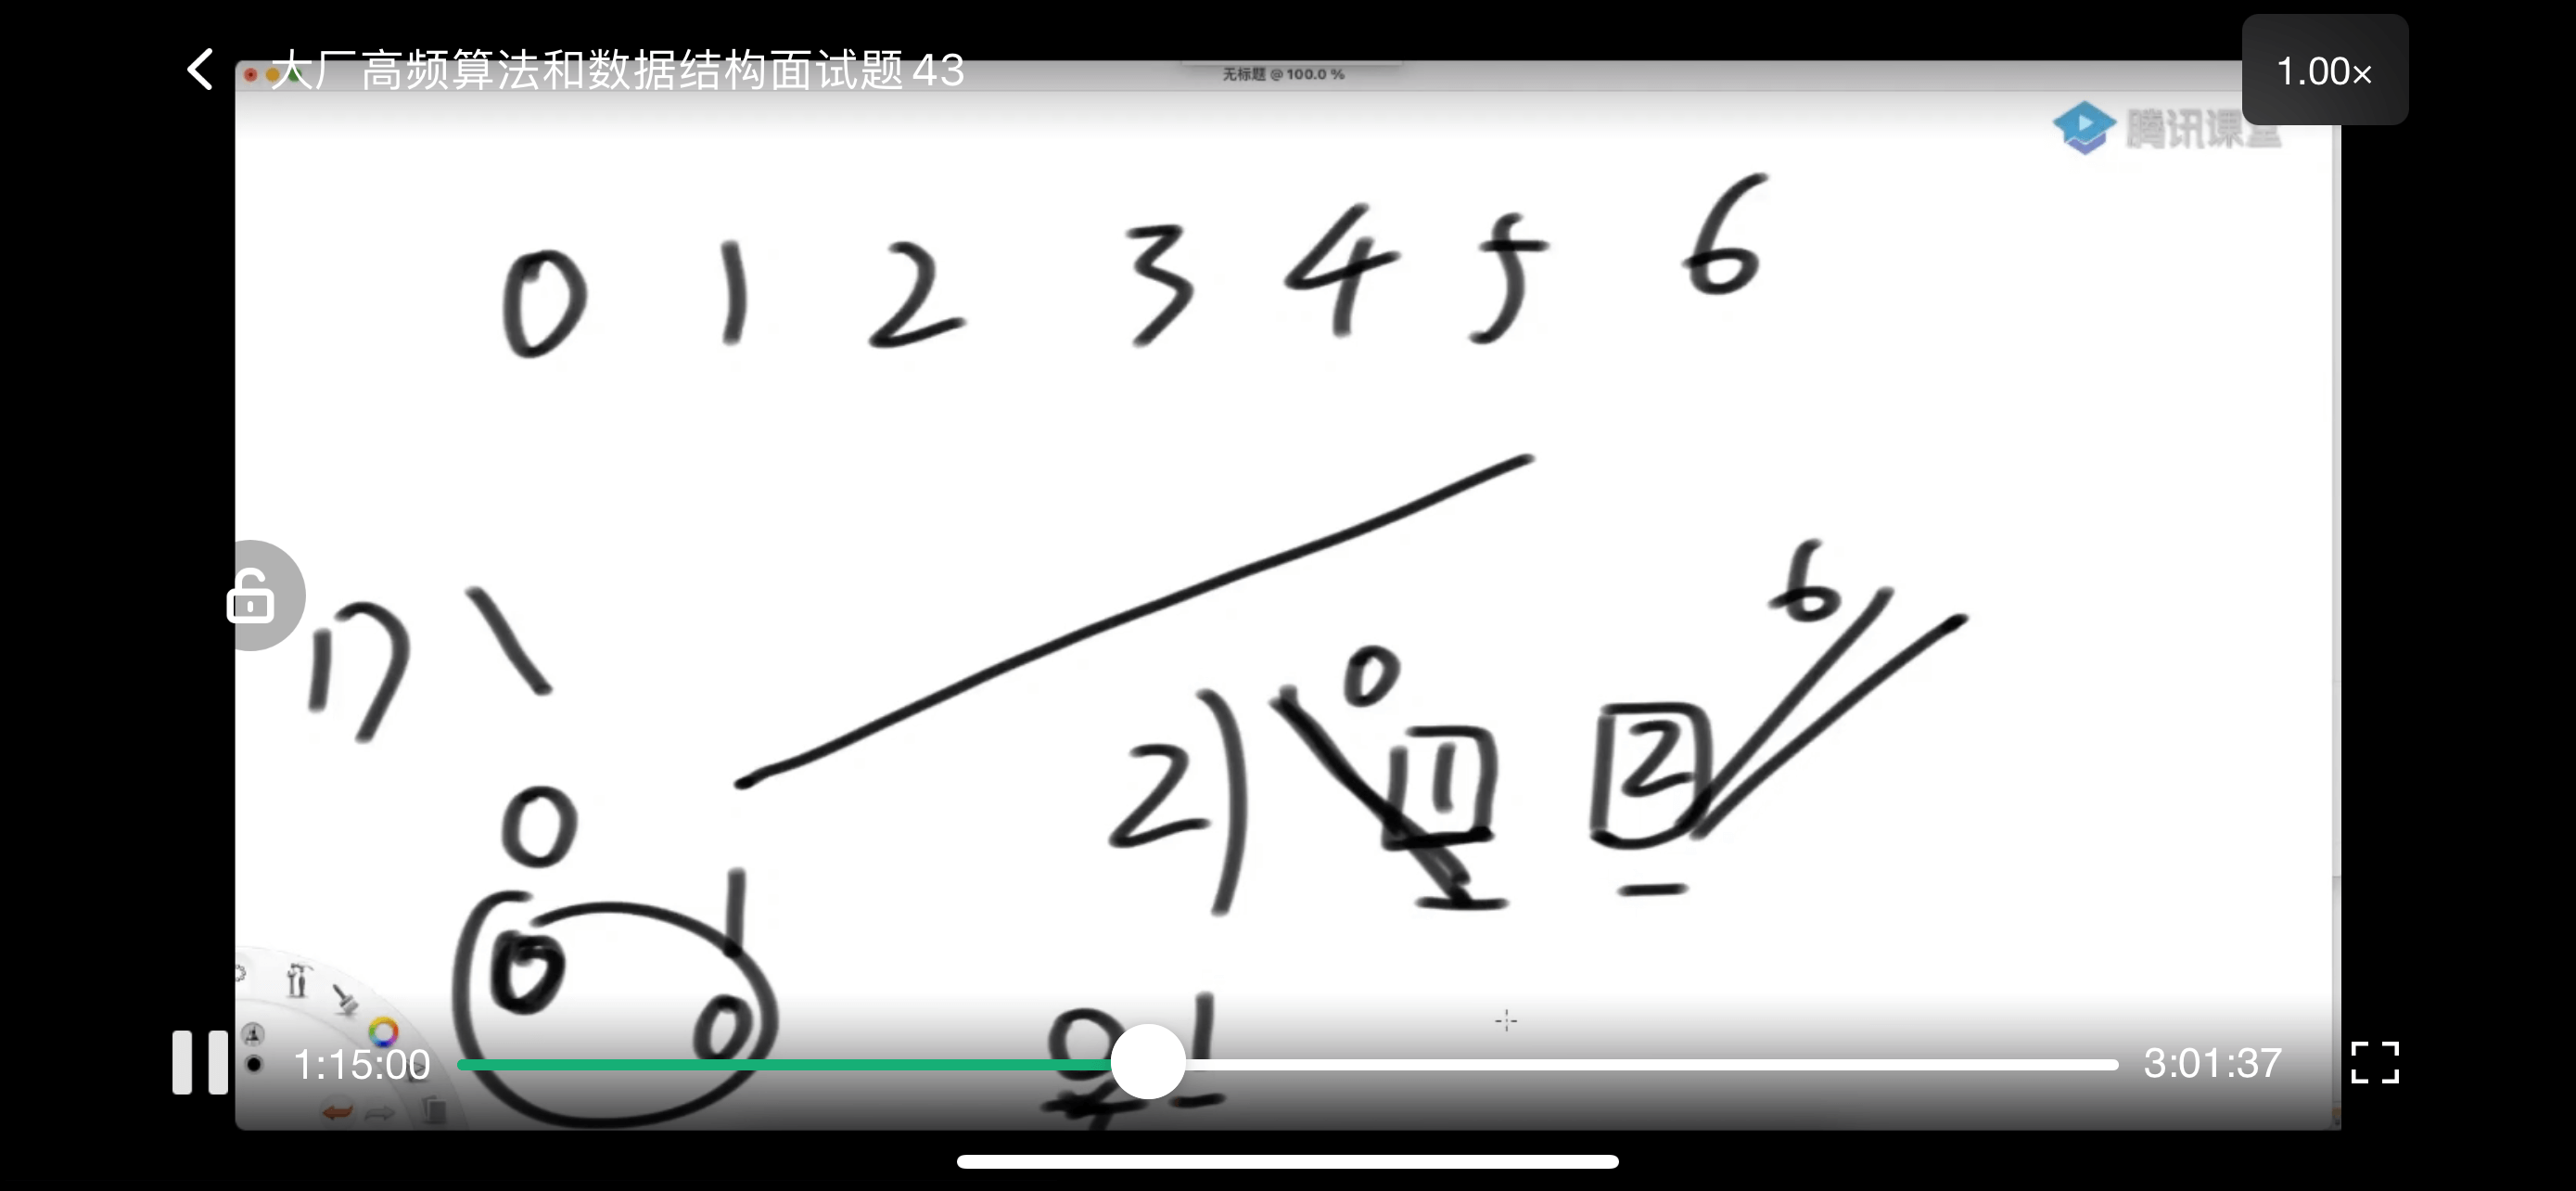 大厂高频算法和数据结构面试题43
无标题 @ 100.0 %
1.00×
腾讯课堂
0 1 2 3 4 5 6
6
1)
0
2) 1 2
0
1
0 0
0 1
1:15:00
3:01:37